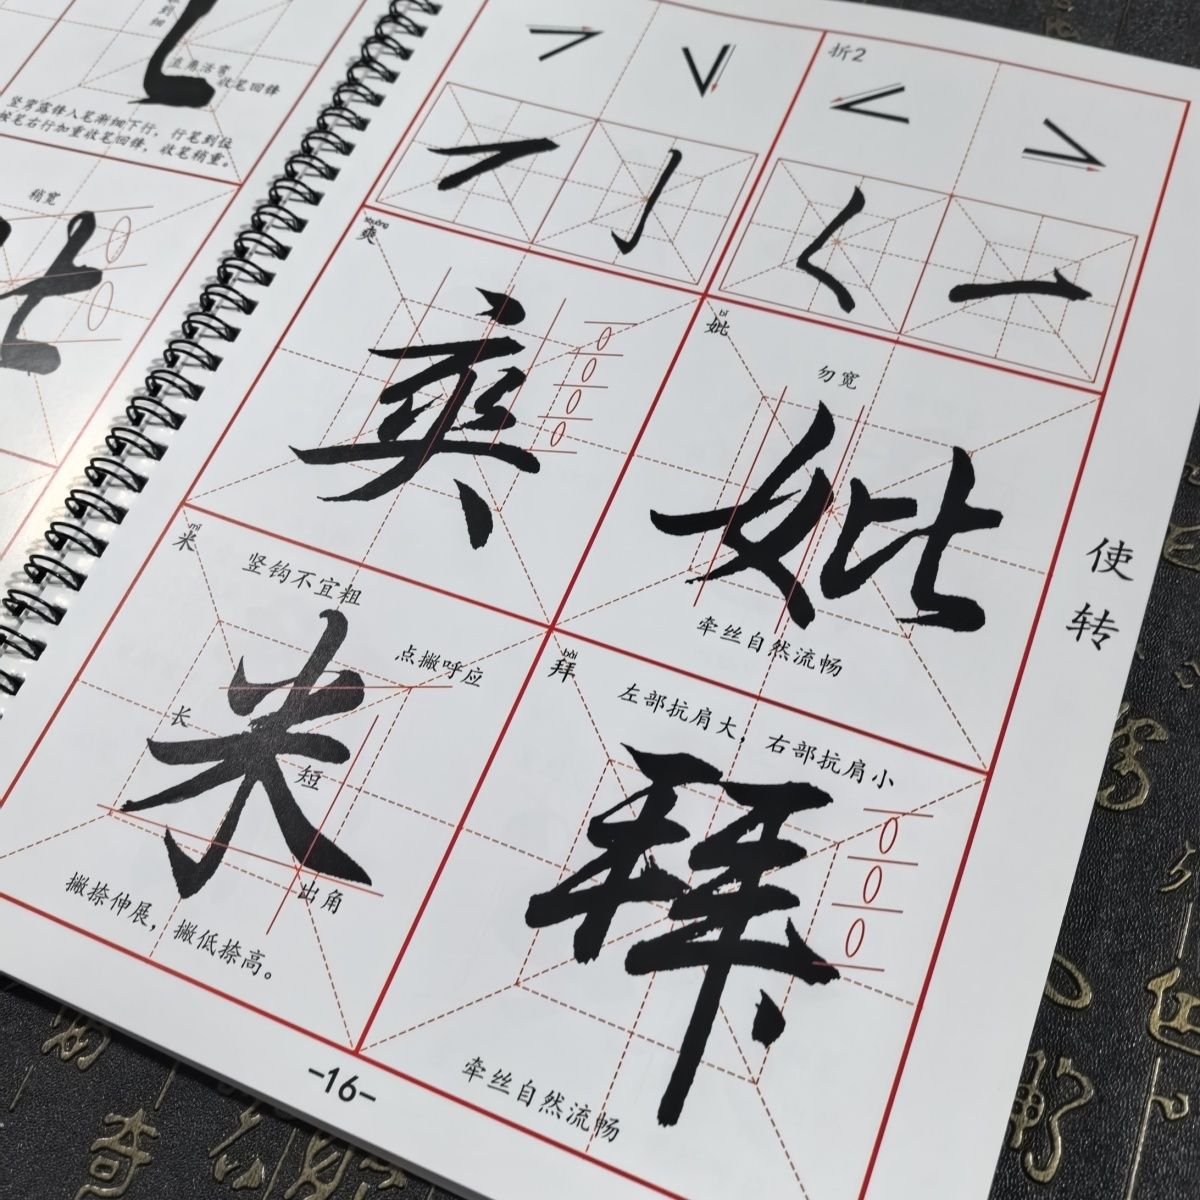 直角活弯
收笔回锋
竖弯露锋入笔渐细下行，行笔到位
按笔右行加重收笔回锋，收笔稍重。
稍宽
折2
shuǎng
爽
爽
bǐ
妣
勿宽
妣
牵丝自然流畅
mǐ
米
竖钩不宜粗
点撇呼应
长
短
米
出角
撇捺伸展，撇低捺高。
bài
拜
左部抗肩大，右部抗肩小
拜
牵丝自然流畅
使转
-16-